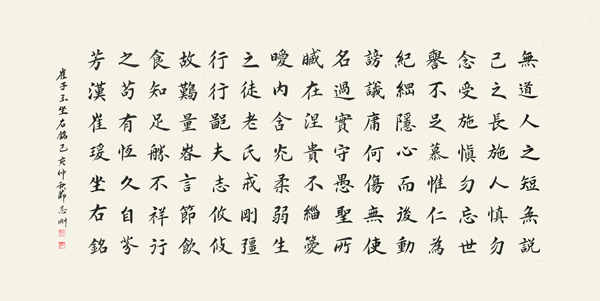 無道人之短無說
己之長施人慎勿
念受施慎勿忘世
譽不足慕惟仁為
紀綱隱心而後動
謗議庸何傷無使
名過實守愚聖所
臧在涅貴不緇曖
曖內含光柔弱生
之徒老氏戒剛彊
行行鄙夫志攸攸
故難量昚言節飲
食知足勝不祥行
之苟有恆久自芬
芳漢崔瑗坐右銘
崔子玉坐右銘己亥仲秋節志剛